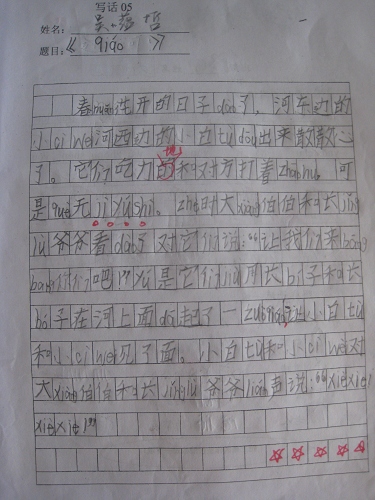 写话05
姓名:
题目:《 qiáo 》
春nuǎn花开的日子dào了,河东边的
小cì wei河西边的小白tù dōu出来散散心
了。它们吃力的和对方打着zhāohu。可
是què无jì yú shì。zhè时大xiàng伯伯和长jǐng
lù爷爷看dào了对它们说:“让我们来bāng
bang你们吧!”Yú是它们jiù用长bí子和长
bó子在河上面dā起了一zuò qiáo让小白tù
和小cì wei见了面。小白tù和小cì wei对
大xiàng伯伯和长jǐng lù爷爷lián声说:“xiè xie!
xiè xie!”